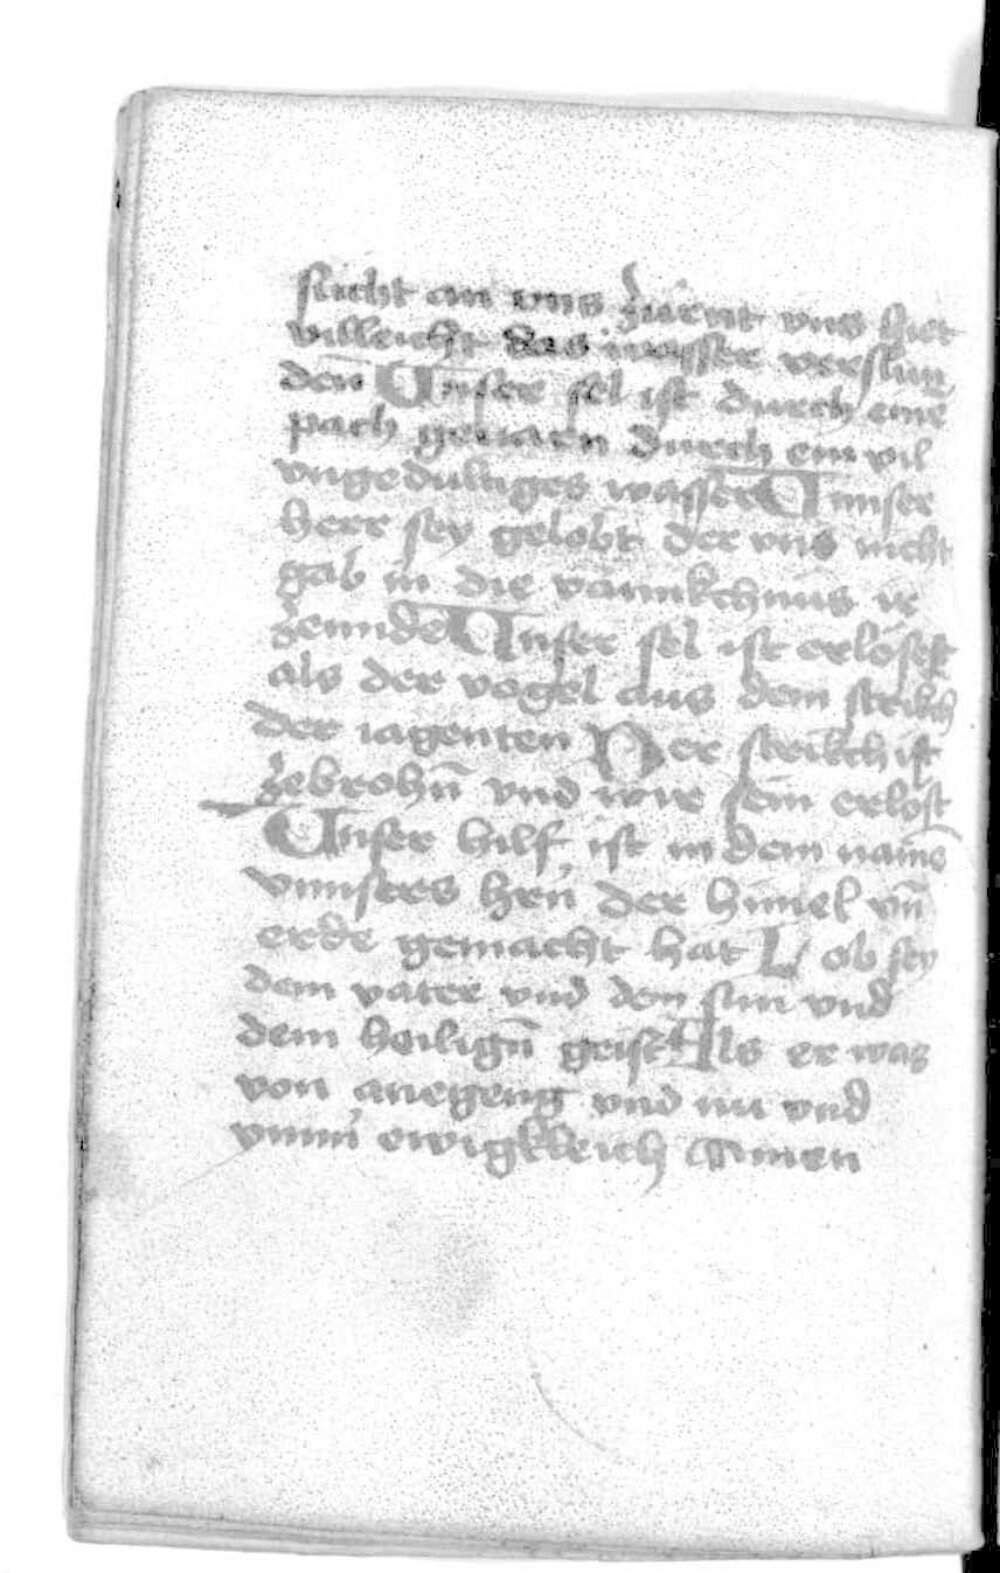 sucht an vns zürnt vns hiet
villeicht das wasser verslun
den̄ Vnser sel ist durch einē
pach gangen durch ein vil
vngedultiges wasser Vnnser
herr sey gelobt der vns nicht
gab in die vannkchnus ir
zennde Vnser sel ist erlöset
als der vogel aus dem strikch
der iagenten Der strikch ist
zebrohn̄ vnd wir sein erlost
Vnser hilf ist in dem namē
vnnsers hrn̄ der himel vn̄
erde gemacht hat Lob sey
dem vater vnd den sun vnd
dem heilign̄ geist Als er was
von anegeng vnd nu vnd
ymm̄ ewigkleich Amen